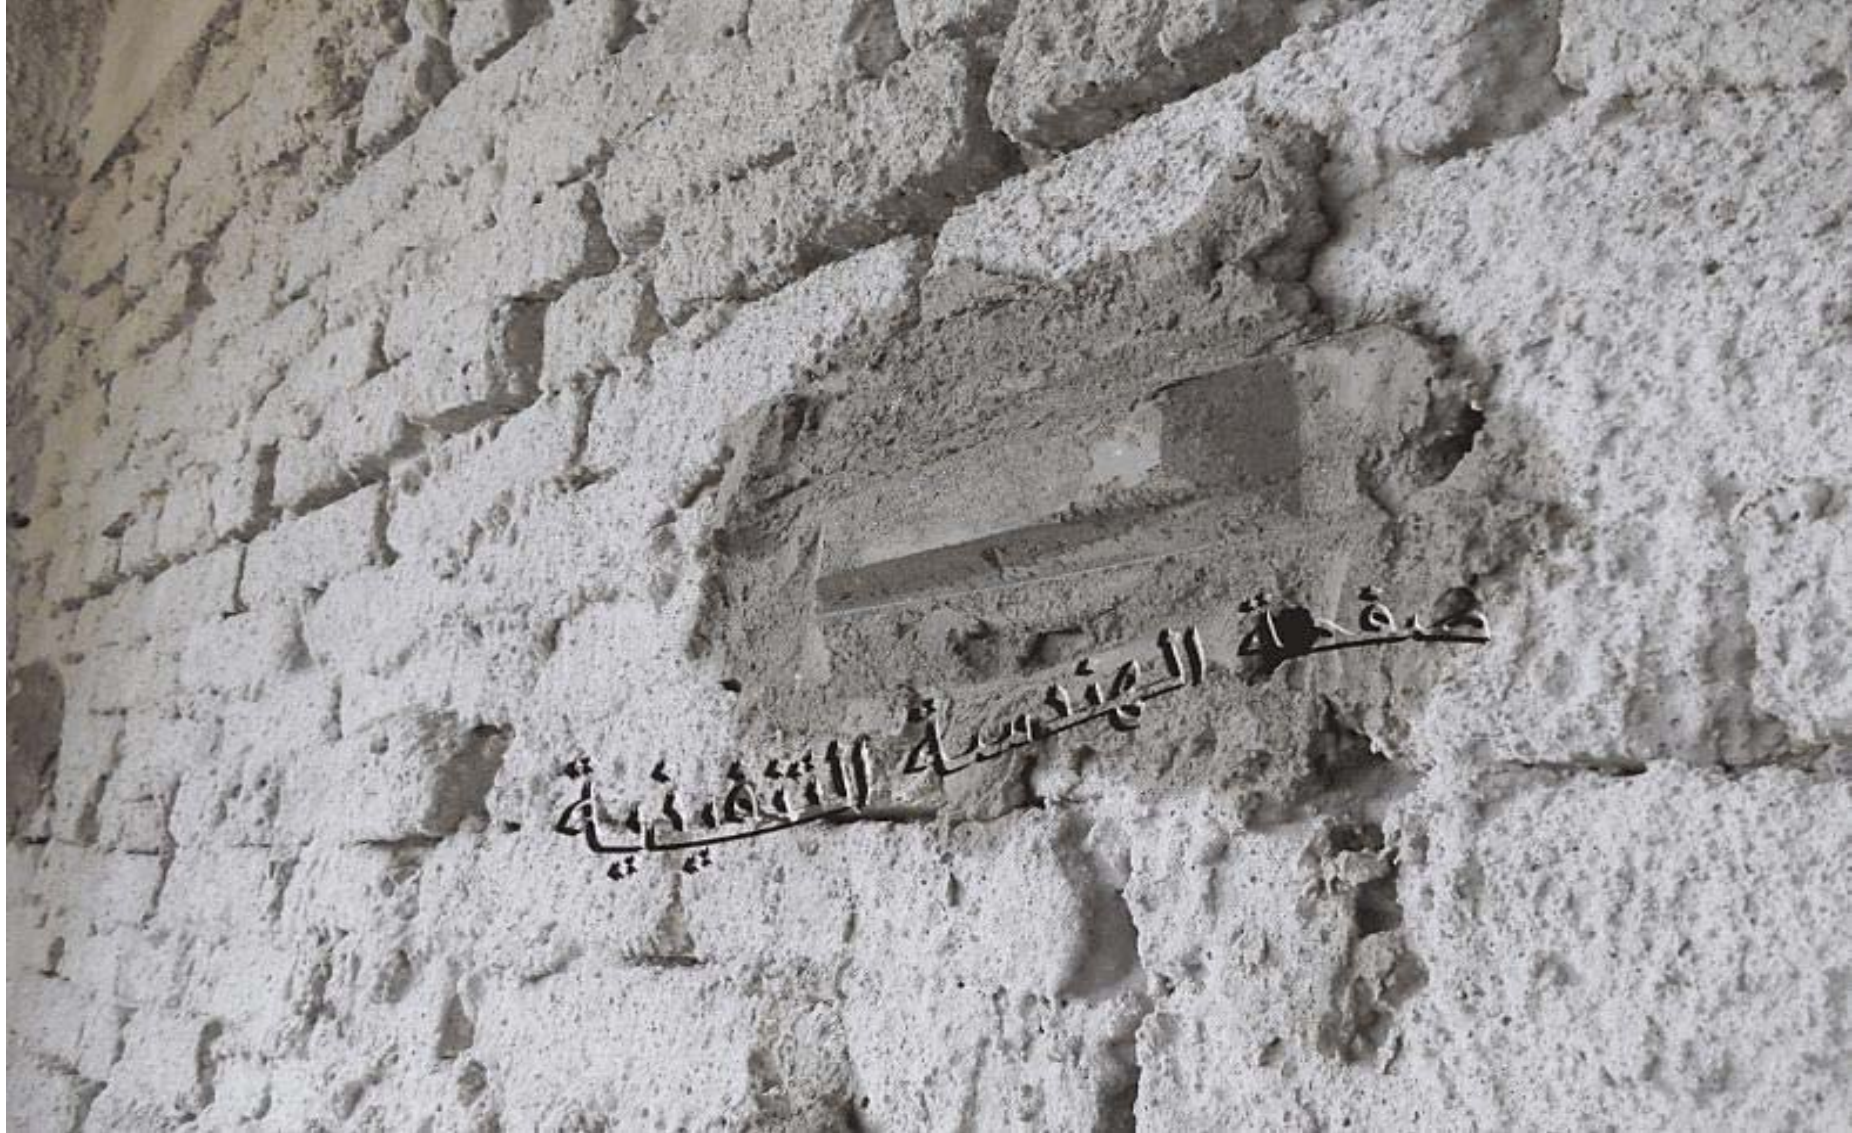 صفحة الهندسة التنفيذية